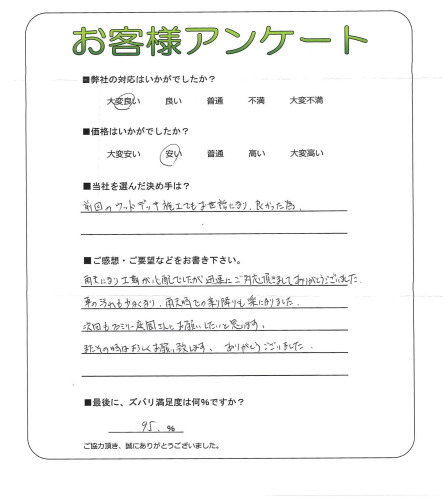 お客様アンケート
■弊社の対応はいかがでしたか？
大変良い 良い 普通 不満 大変不満
■価格はいかがでしたか？
大変安い 安い 普通 高い 大変高い
■当社を選んだ決め手は？
前回のウッドデッキ施工でもお世話になり、良かった為。
■ご感想・ご要望などをお書き下さい。
雨天になり工事が心配でしたが迅速にご対応頂きましてありがとうございました。
車の汚れも少なくなり、雨天時での乗り降りも楽になりました。
次回もファミリー庭園さんにお願いしたいと思います。
またその時はよろしくお願い致します。ありがとうございました。
■最後に、ズバリ満足度は何%ですか？
95.%
ご協力頂き、誠にありがとうございました。